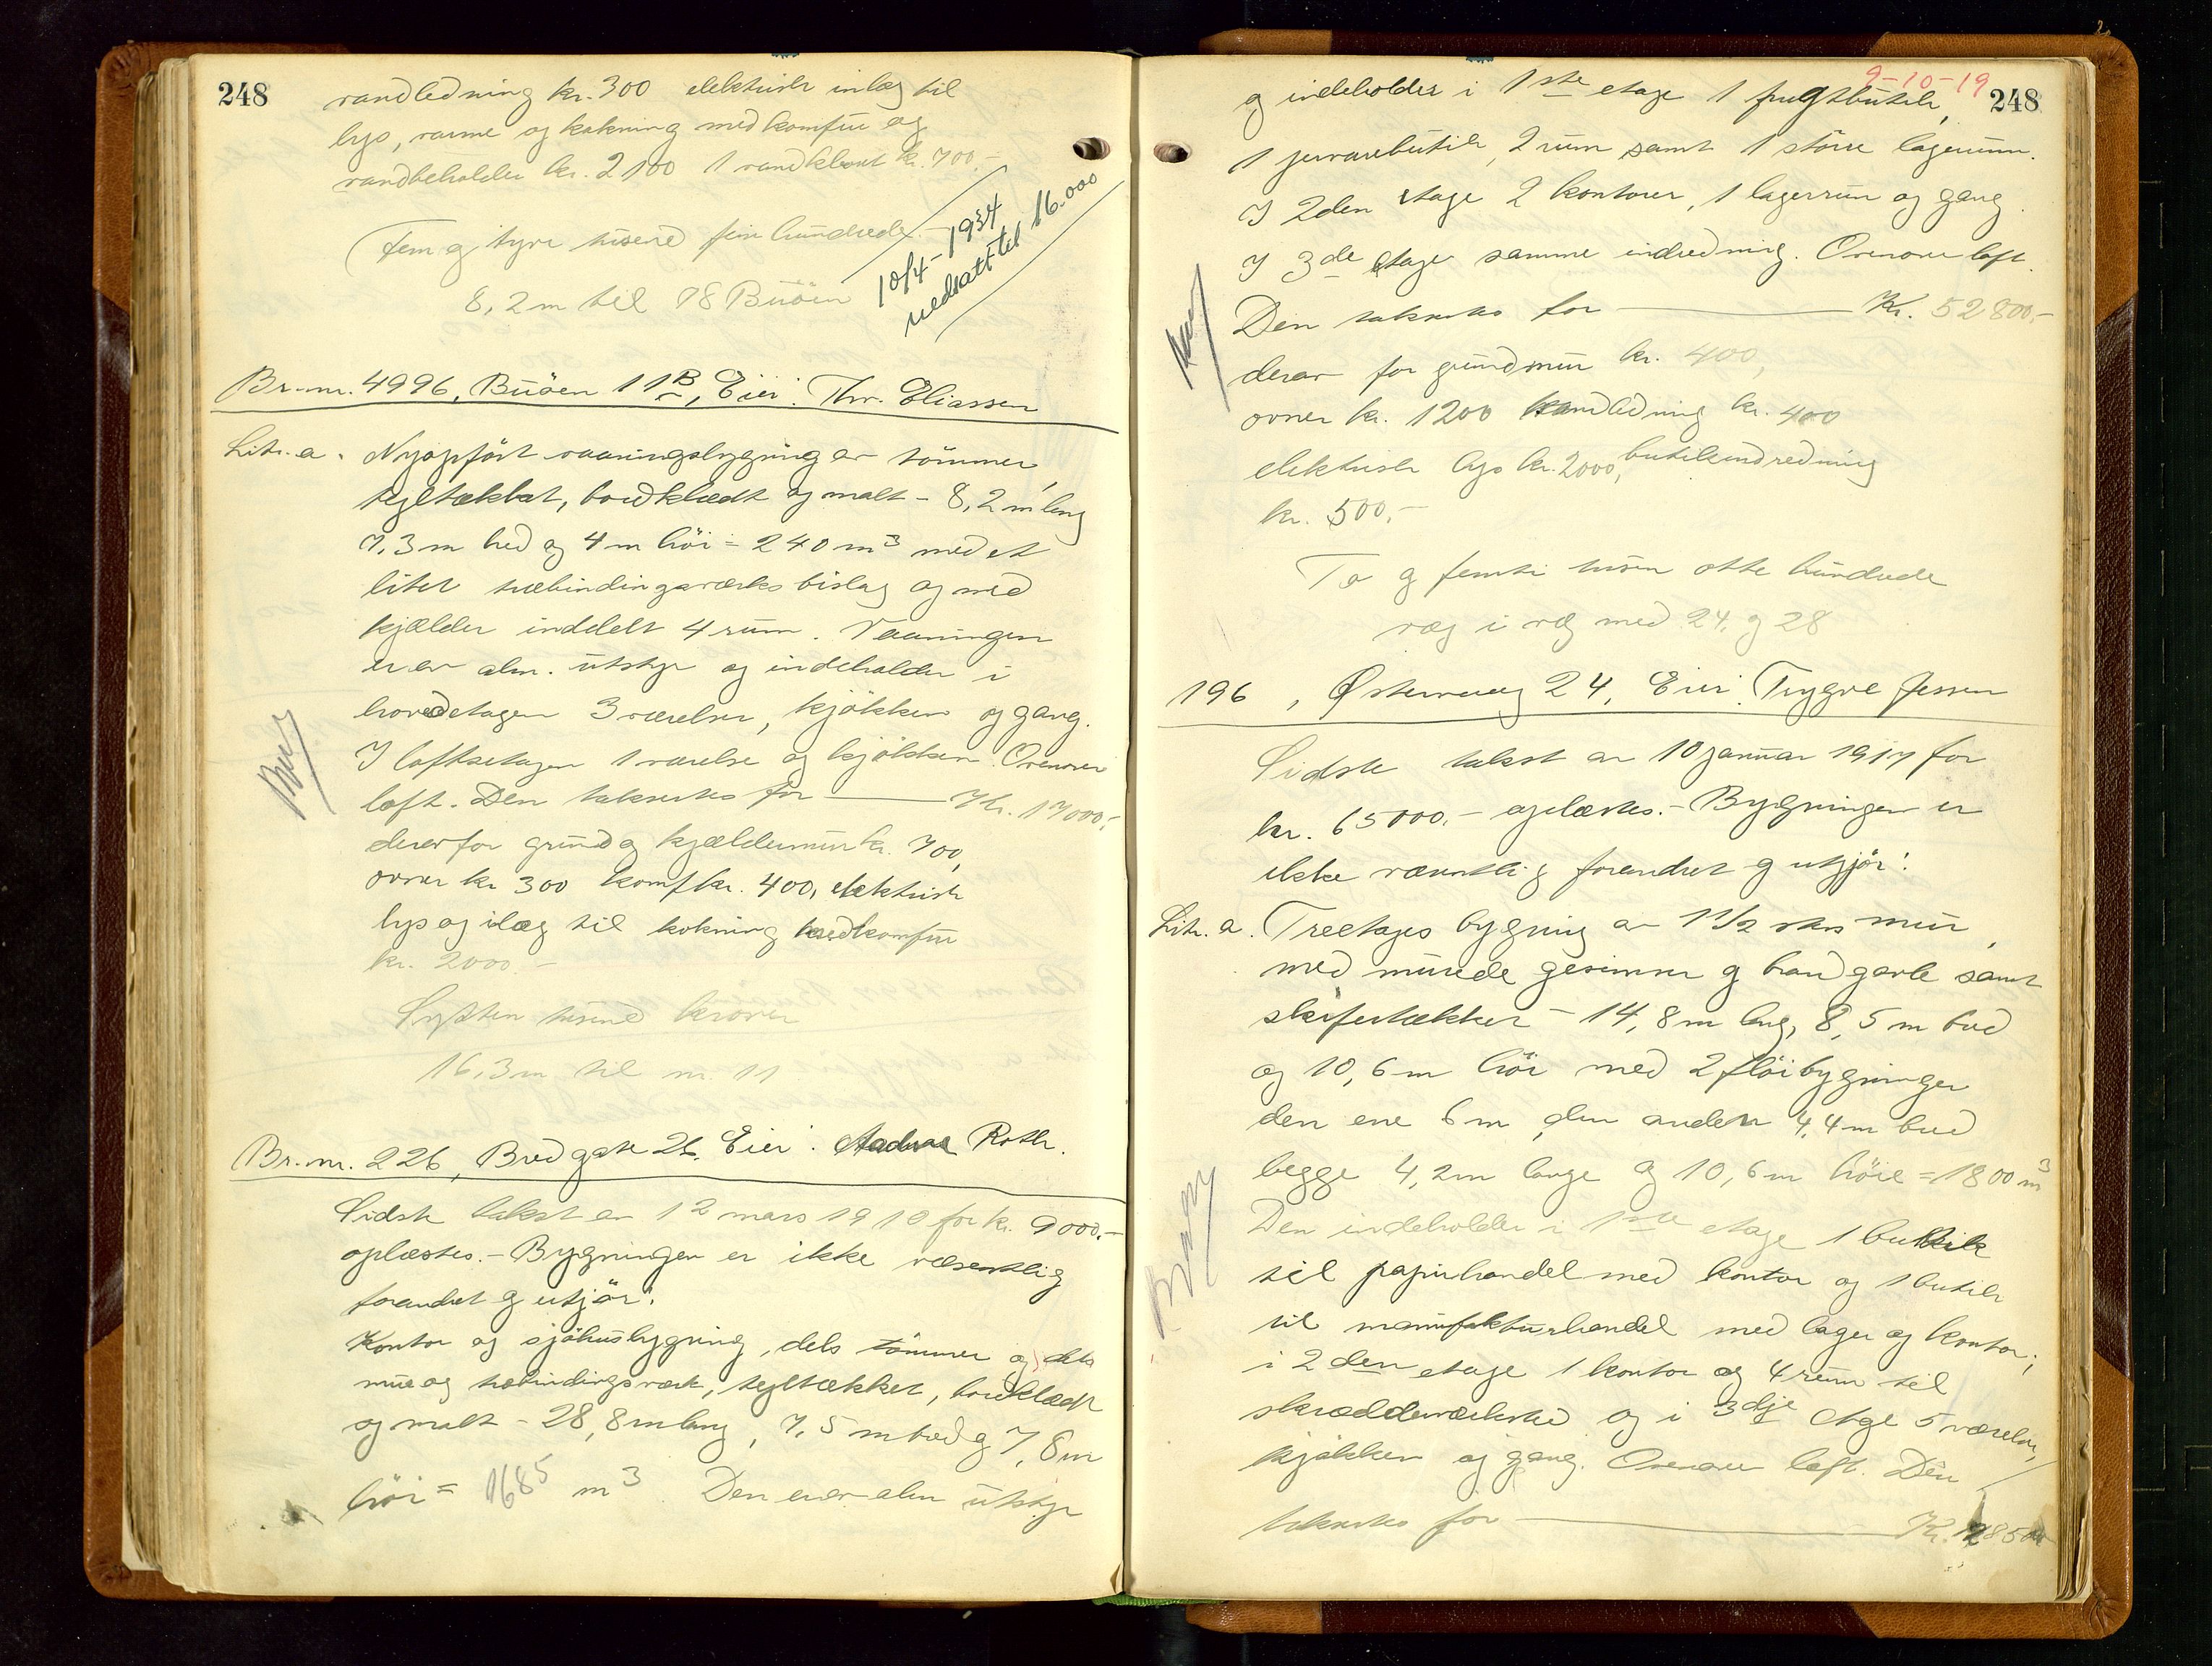 248
vandledning kr. 300 elektrisk inlæg til
lys, varme og kokning med komfur og
vandbeholder kr. 2100 1 vandklosett kr. 700.-
Fem og tyve tusend fem hundrede.
10/4-1934
nedsatt til 16.000
8,2 m til 18 Buöen
Br.nr. 4996, Buöen 11B, Eier: Thv. Eliassen
Litr. a. Nyopfört vaaningsbygning av tömmer,
tegltækket, bordklædt og malt - 8,2 m lang
7,3 m bred og 4 m höi = 240 m3 med et
litet træbindingsverks bislag og med
kjælder inddelt 4 rum. Vaaningen
er av alm. utstyr og indeholder i
hovedetagen 3 værelser, kjökken og gang.
I loftsetagen 1 værelse og kjökken. Ovenover
loft. Den takseres for — Kr. 17000.-
derav for grund og kjældermur kr. 700,
ovner kr 300 komf kr. 400, elektrisk
lys og ilæg til kokning med komfur
kr. 2000.-
Sytten tusend kroner
16,3 m til nr. 11
Br.nr. 226, Bredgate 26. Eier: Roth.
Sidste takst av 12 mars 1910 for kr. 9000.-
oplæstes. - Bygningen er ikke væsentlig
forandret og utgjör:
Kontor og sjöhusbygning, dels tömmer og dels
mur og træbindingsverk, tegltækket, bordklædt
og malt - 28,8 m lang, 7,5 m bred og 7,8 m
höi = 1685 m3 Den er av alm utstyr
9-10-19
248
og indeholder i 1ste etage 1 frugtbutik,
1 jernvarebutik, 2 rum samt 1 större lagerrum.
I 2den etage 2 kontorer, 1 lagerrum og gang.
I 3de etage samme indredning. Ovenover loft.
Den takseres for — Kr. 52800.-
derav for grundmur kr. 400,
ovner kr. 1200 vandledning kr. 400
elektrisk lys kr. 2000, butikindredning
kr. 500.-
To og femti tusen otte hundrede
væg i væg med 24 og 28
196, Østervaag 24, Eier: Trygve Jessen
Sidste takst av 10 januar 1917 for
kr. 65000.- oplæstes. - Bygningen er
ikke væsentlig forandret og utgjör:
Litr. a. Treetages bygning av 1 1/2 stens mur,
med murede gesimser og brandgavle samt
skifertækket - 14,8 m lang, 8,5 m bred
og 10,6 m höi med 2 flöibygninger
den ene 6 m, den anden 4,4 m bred
begge 4,2 m lange og 10,6 m höie = 1800 m3
Den indeholder i 1ste etage 1 butik
til papirhandel med kontor og 1 butik
til manufakturhandel med lager og kontor;
i 2den etage 1 kontor og 4 rum til
skrædderverksted og i 3dje etage 5 værelser,
kjökken og gang. Ovenover loft. Den
takseres for — Kr.